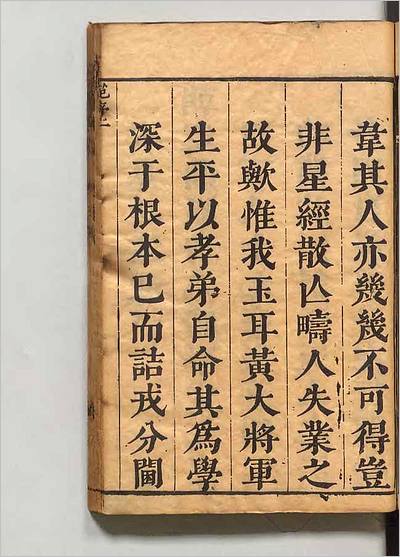 韋其人亦幾幾不可得豈
非星經散亾疇人失業之
故歟惟我玉耳黃大將軍
生平以孝弟自命其爲學
深于根本已而詰戎分閫